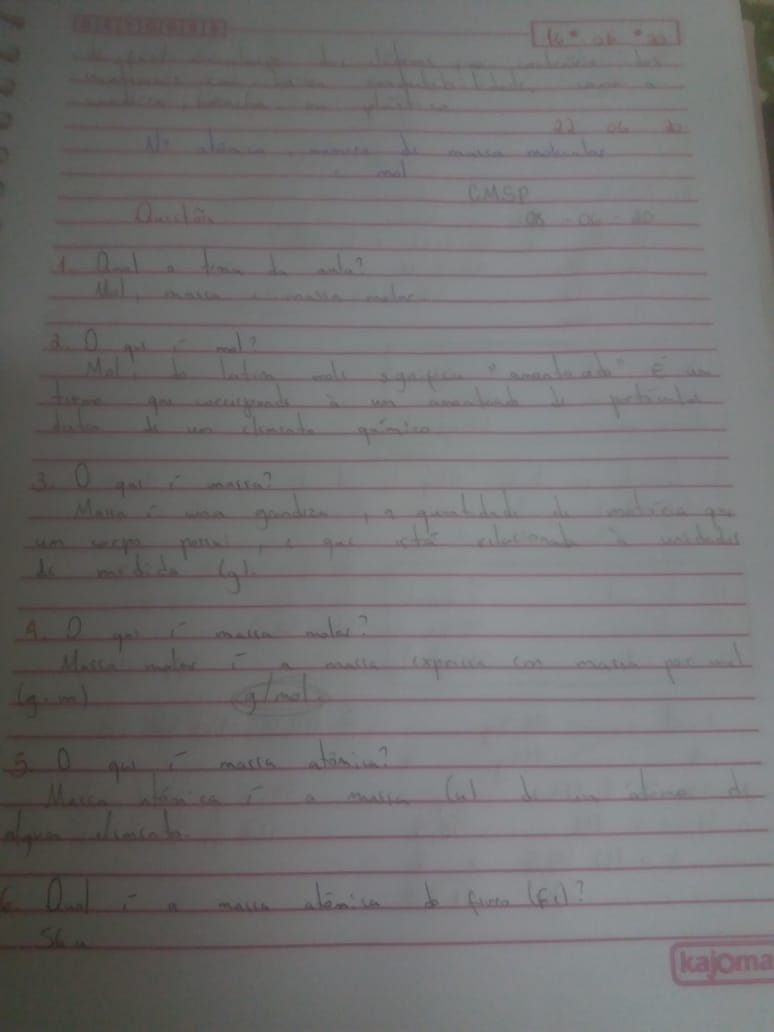 16 06 20
condutibilidade, como a
madeira, borracha ou plástico.
22 06 20
Nº atômico, número de massa molecular
e mol
CMSP
Questões 08 - 06 - 20
1. Qual o tema da aula?
Mol, massa e massa molar.
2. O que é mol?
Mol, do latim mole significa "amontoado" É um
termo que corresponde à um amontoado de partículas
dentro de um elemento químico
3. O que é massa?
Massa é uma gandeza, a quantidade de matéria que
um corpo possui, e que está relacionada à unidades
de medida (g).
4. O que é massa molar?
Massa molar é a massa expressa em massa por mol
(g.m) g/mol
5. O que é massa atômica?
Massa atômica é a massa (u) de um átomo de
algum elemento.
6. Qual é a massa atômica do ferro (Fe)?
56 u
kajoma